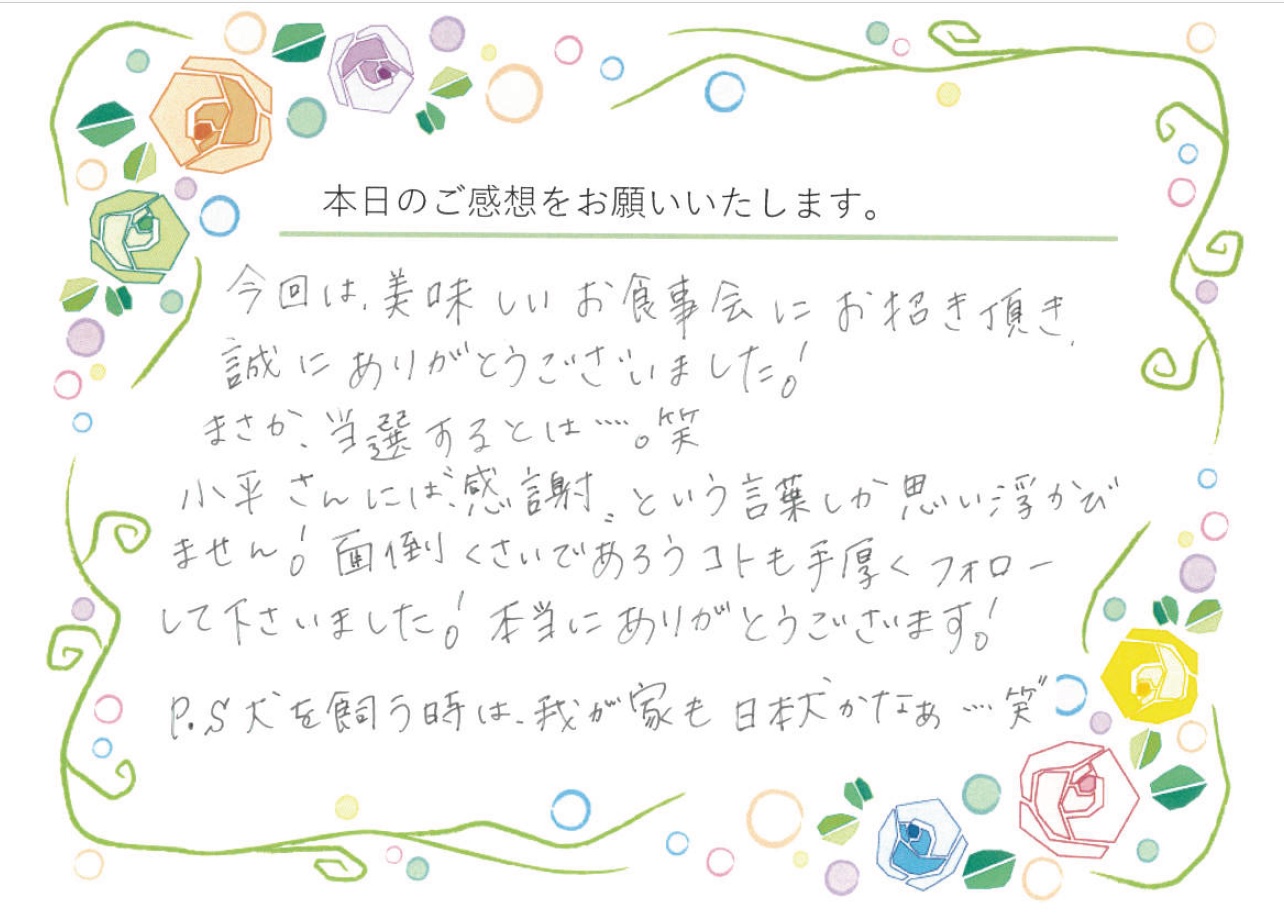 本日のご感想をお願いいたします。
今回は、美味しいお食事会にお招き頂き、
誠にありがとうございました!
まさか、当選するとは……。笑
小平さんには〝感謝〟という言葉しか思い浮かび
ません!面倒くさいであろうコトも手厚くフォロー
して下さいました!本当にありがとうございます!
P.S犬を飼う時は、我が家も日本犬かなぁ…笑〟